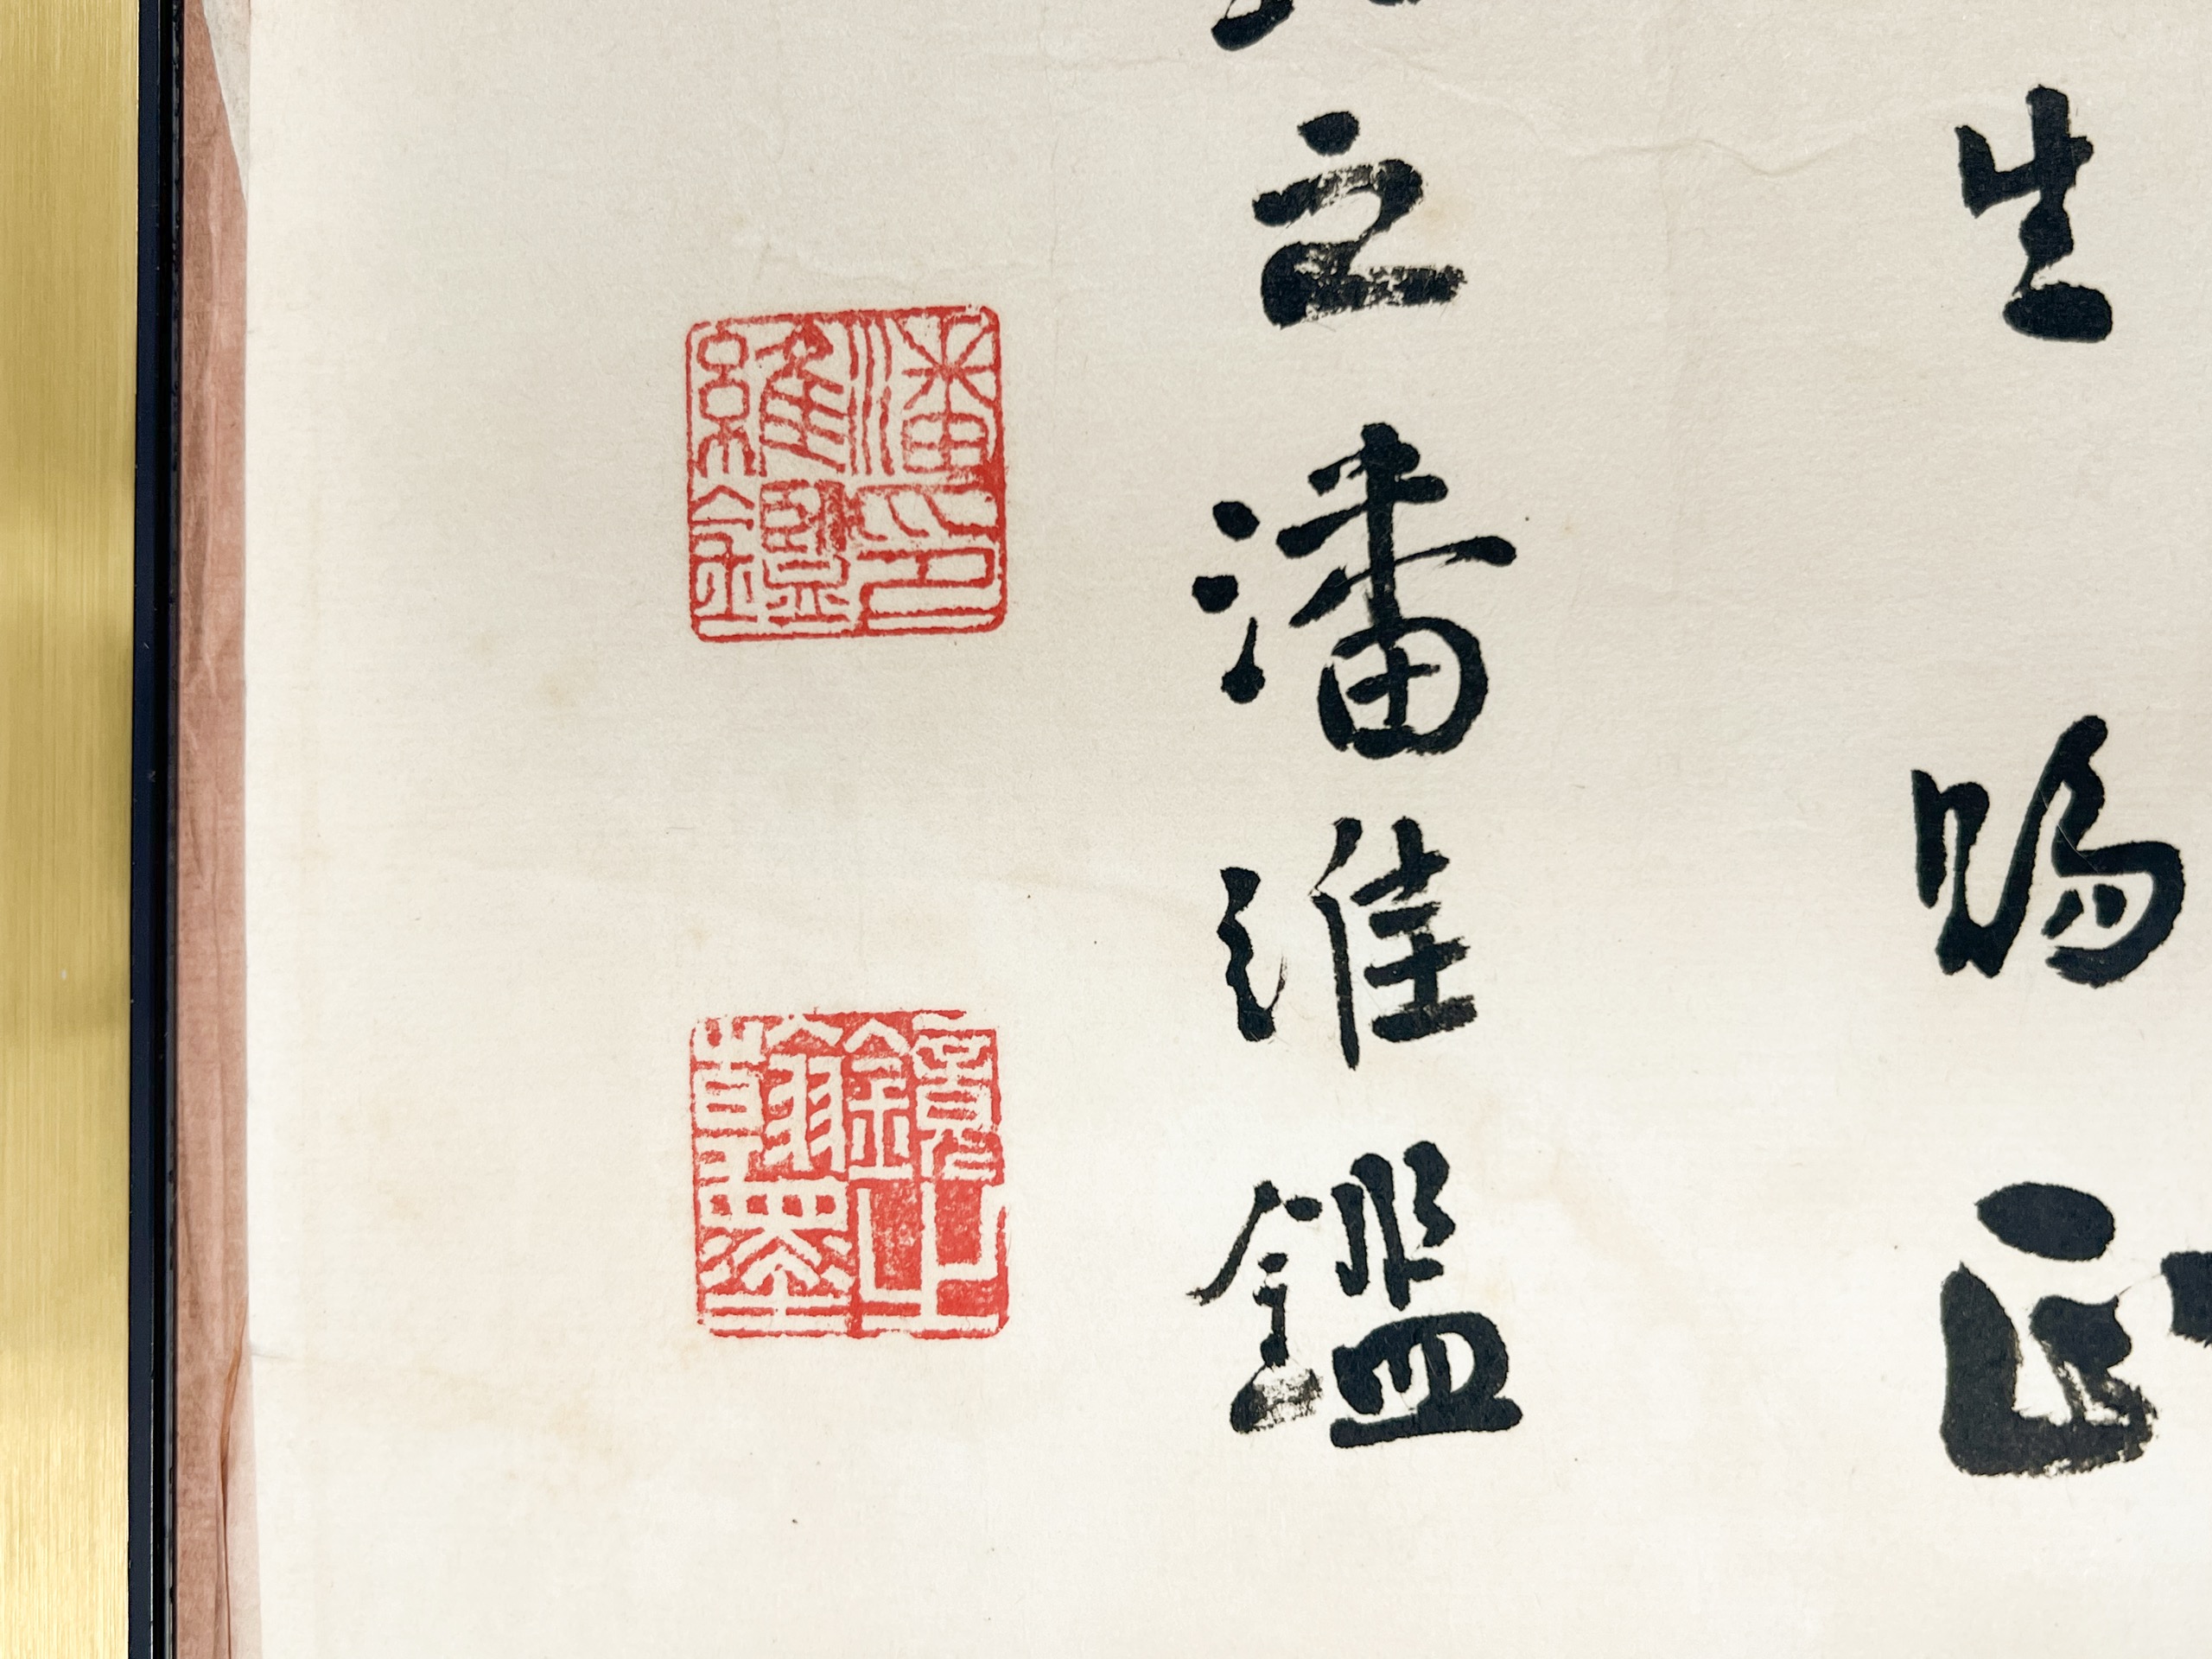 生賜正
之潘維鑑
潘印維鑑
鏡山翰墨